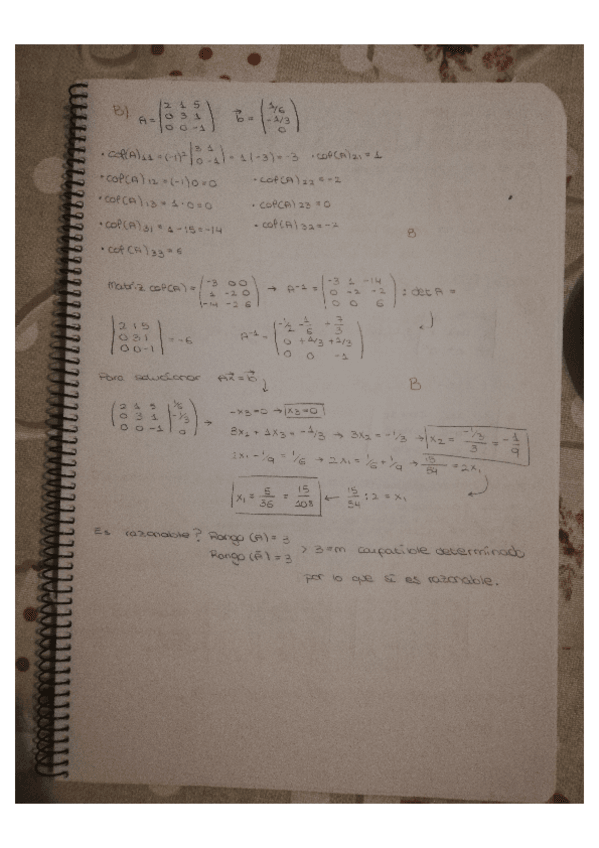 B) A = (2 1 5 / 0 3 1 / 0 0 -1) b⃗ = (1/6 / -1/3 / 0)
· cof(A)11 = (-1)² |3 1 / 0 -1| = 1(-3) = -3 · cof(A)21 = 1
· cof(A)12 = (-1)0 = 0 · cof(A)22 = -2
· cof(A)13 = 1·0 = 0 · cof(A)23 = 0
· cof(A)31 = 1 - 15 = -14 · cof(A)32 = -2
B
· cof(A)33 = 6
Matriz cof(A) = (-3 0 0 / 1 -2 0 / -14 -2 6) → A⁻¹ = (-3 1 -14 / 0 -2 -2 / 0 0 6) : det A =
|2 1 5 / 0 3 1 / 0 0 -1| = -6 A⁻¹ = (1/2 -1/6 +7/3 / 0 +1/3 +1/3 / 0 0 -1)
Para solucionar Ax⃗ = b⃗
B
(2 1 5 | 1/6 / 0 3 1 | -1/3 / 0 0 -1 | 0) → -x3 = 0 → x3 = 0
3x2 + 1x3 = -1/3 → 3x2 = -1/3 → x2 = (-1/3)/3 = -1/9
2x1 - 1/9 = 1/6 → 2x1 = 1/6 + 1/9 → 15/54 = 2x1
x1 = 5/36 = 15/108 ← 15/54 : 2 = x1
Es razonable? Rango (A) = 3
Rango (Ā) = 3 > 3 = m compatible determinado
por lo que sí es razonable.